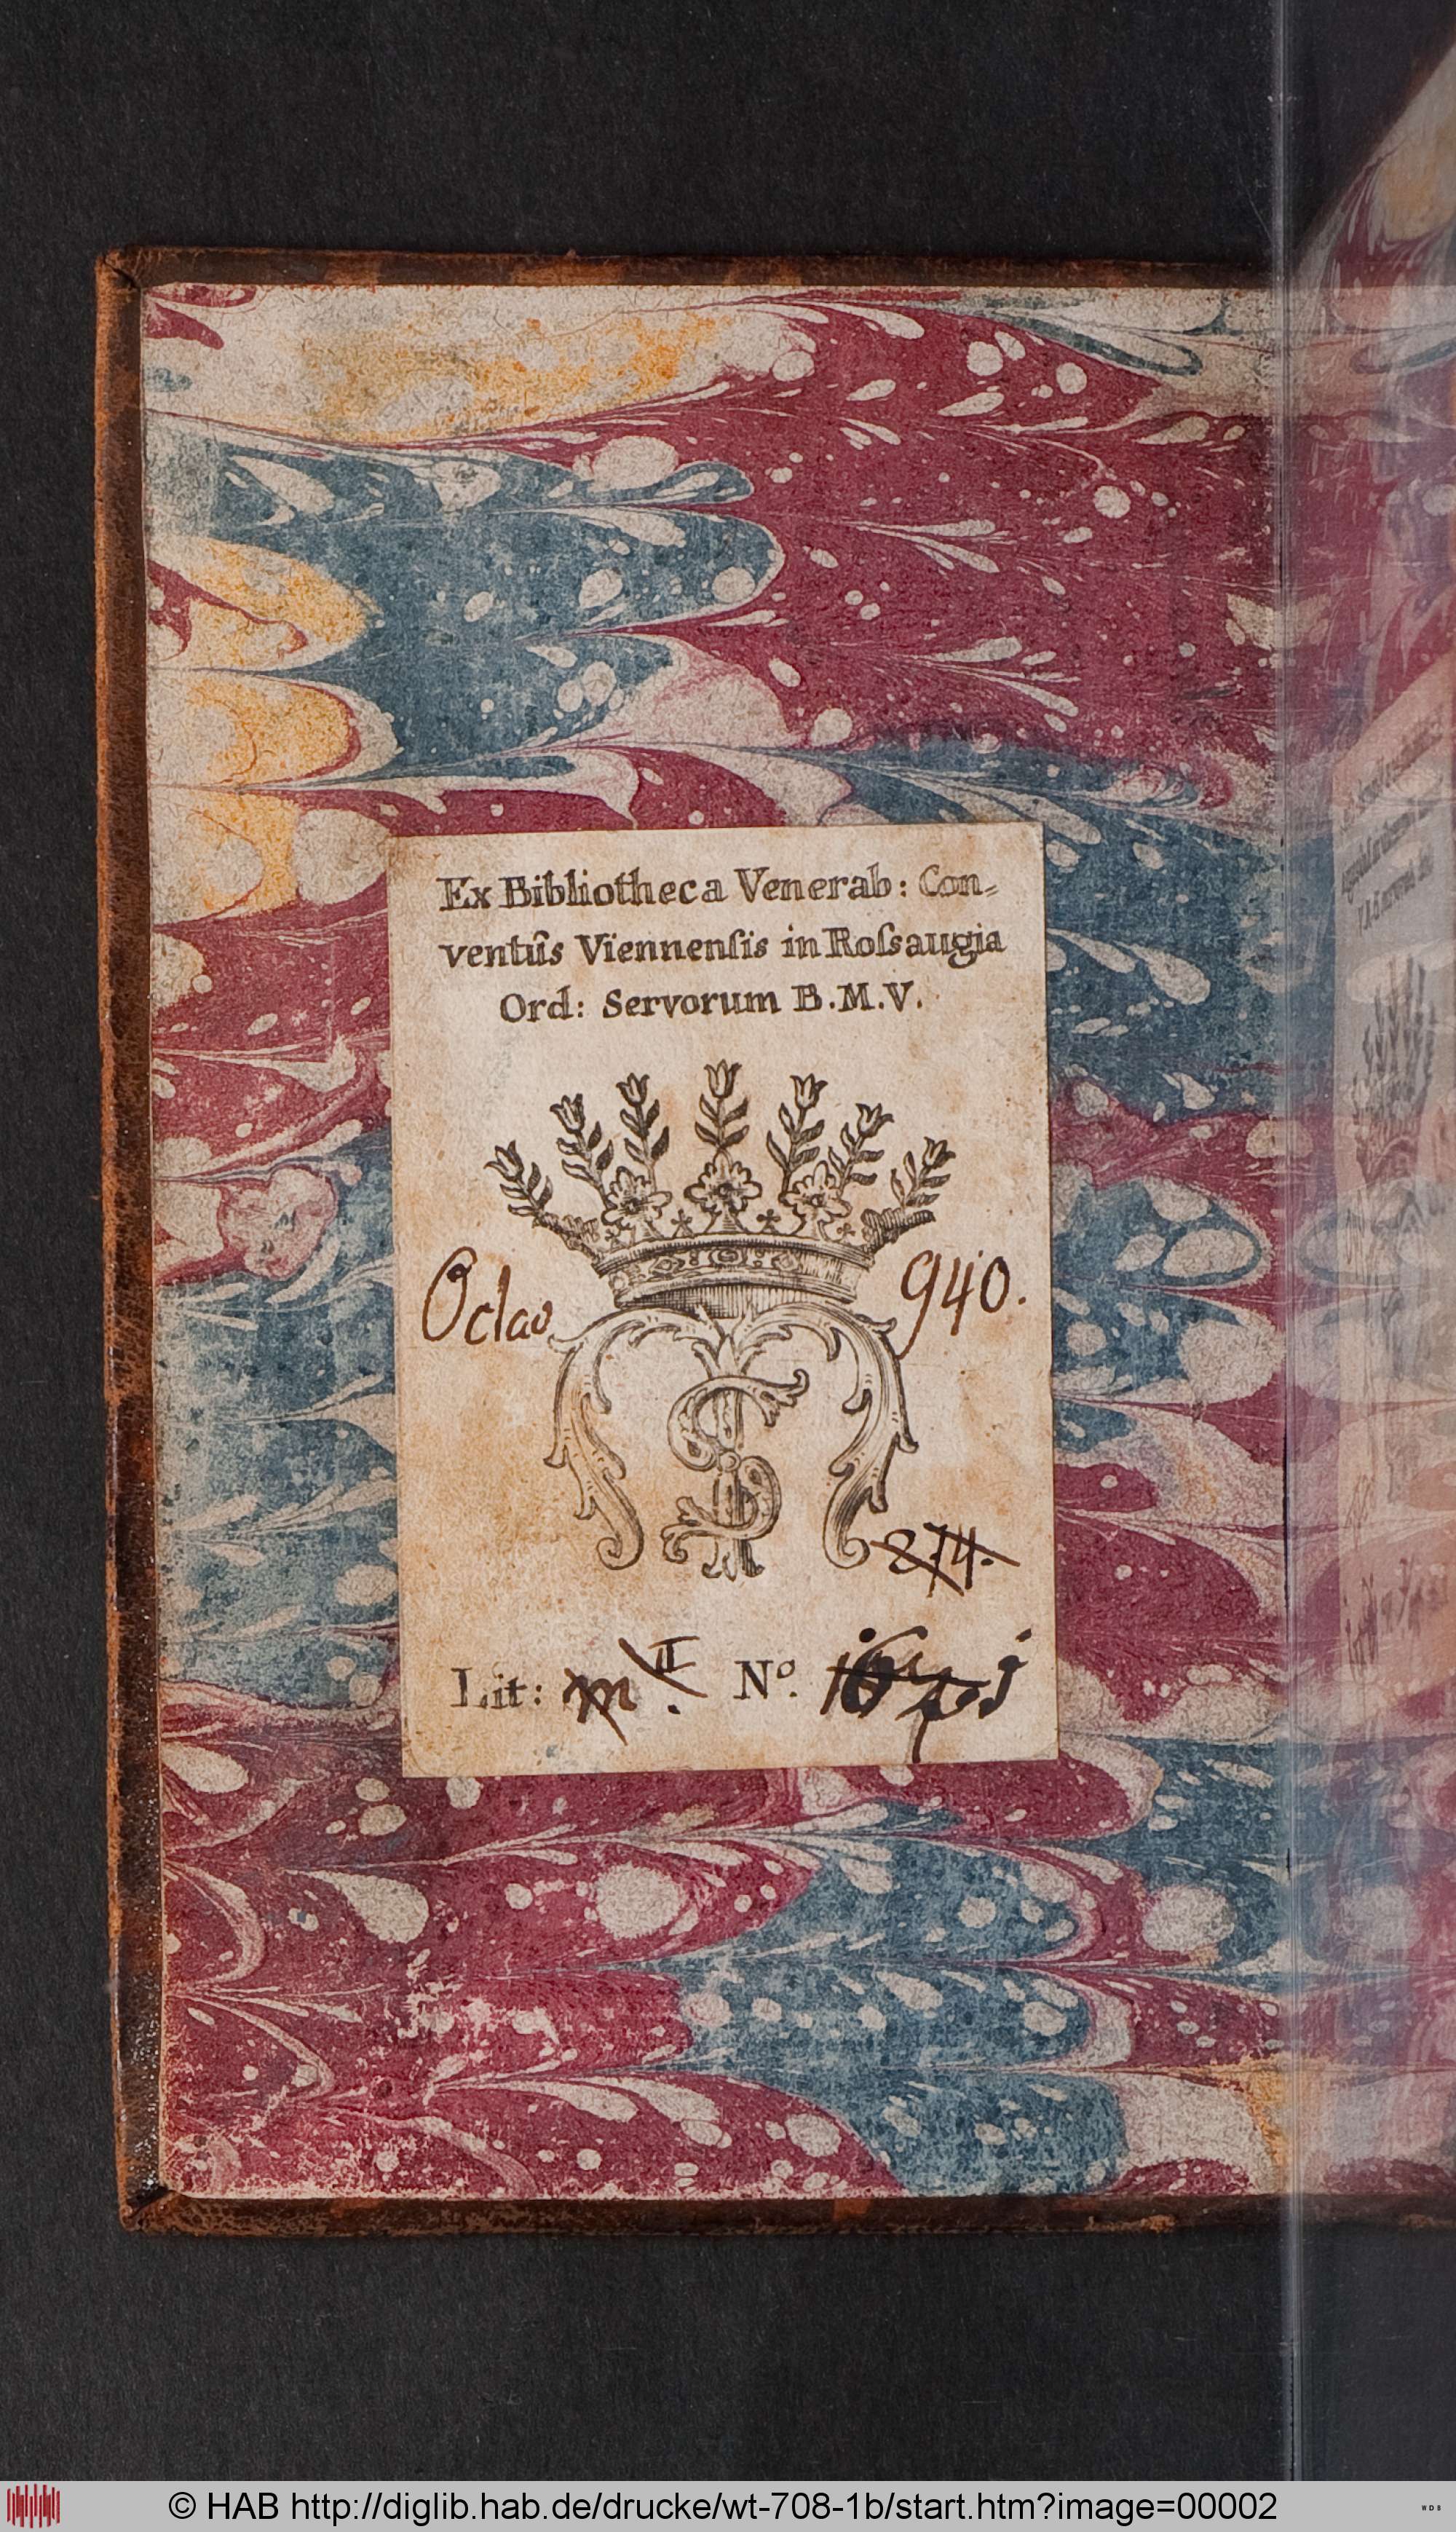 Ex Bibliotheca Venerab: Con-
ventûs Viennenſis in Roſsaugia
Ord: Servorum B.M.V.
Octav 940.
274.
Lit: m II. Nº.
© HAB http://diglib.hab.de/drucke/wt-708-1b/start.htm?image=00002
WDB